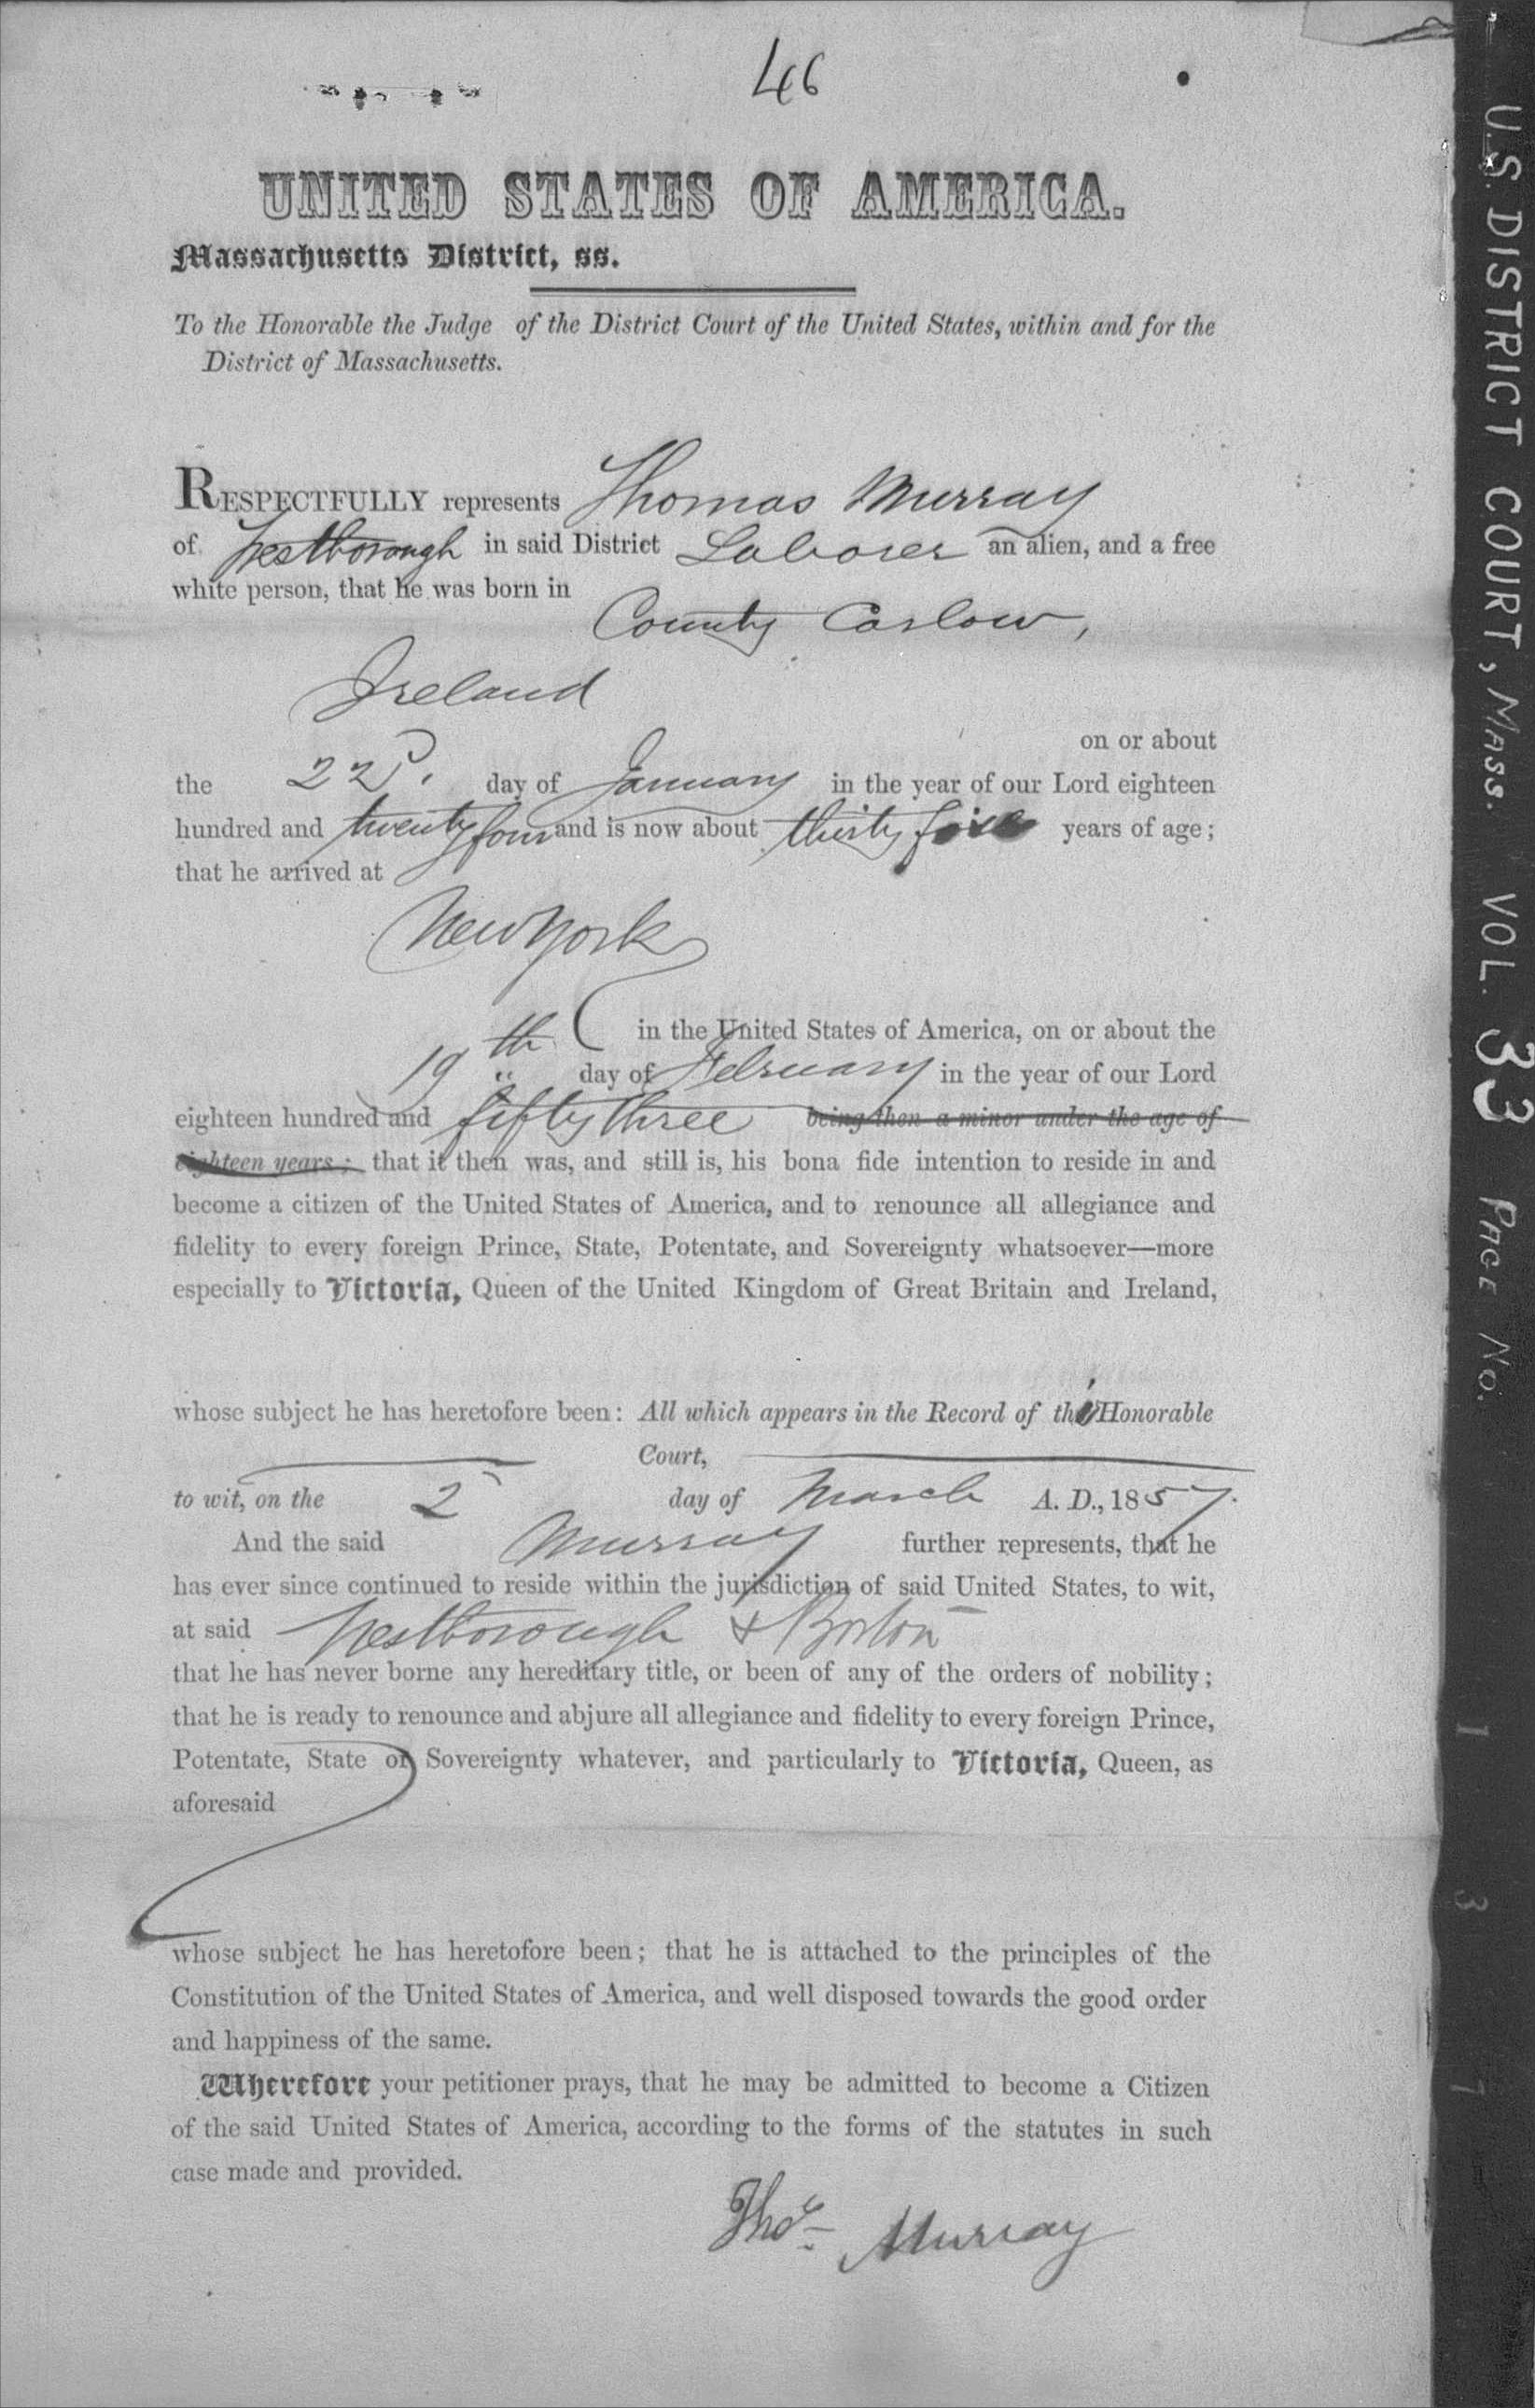 46
UNITED STATES OF AMERICA.
Massachusetts District, ss.
To the Honorable the Judge of the District Court of the United States, within and for the
District of Massachusetts.
RESPECTFULLY represents Thomas Murray
of Westborough in said District Laborer an alien, and a free
white person, that he was born in
County Carlow,
Ireland
on or about
the 22d. day of January in the year of our Lord eighteen
hundred and twenty four and is now about thirty five years of age;
that he arrived at
New York
in the United States of America, on or about the
19th day of February in the year of our Lord
eighteen hundred and fifty three being then a minor under the age of
eighteen years; that it then was, and still is, his bona fide intention to reside in and
become a citizen of the United States of America, and to renounce all allegiance and
fidelity to every foreign Prince, State, Potentate, and Sovereignty whatsoever—more
especially to Victoria, Queen of the United Kingdom of Great Britain and Ireland,
whose subject he has heretofore been: All which appears in the Record of this Honorable
Court,
to wit, on the 2 day of March A. D., 1857.
And the said Murray further represents, that he
has ever since continued to reside within the jurisdiction of said United States, to wit,
at said Westborough & Boston
that he has never borne any hereditary title, or been of any of the orders of nobility;
that he is ready to renounce and abjure all allegiance and fidelity to every foreign Prince,
Potentate, State or Sovereignty whatever, and particularly to Victoria, Queen, as
aforesaid
whose subject he has heretofore been; that he is attached to the principles of the
Constitution of the United States of America, and well disposed towards the good order
and happiness of the same.
Wherefore your petitioner prays, that he may be admitted to become a Citizen
of the said United States of America, according to the forms of the statutes in such
case made and provided.
Thos. Murray
U.S. DISTRICT COURT, MASS. VOL. 33 PAGE No.